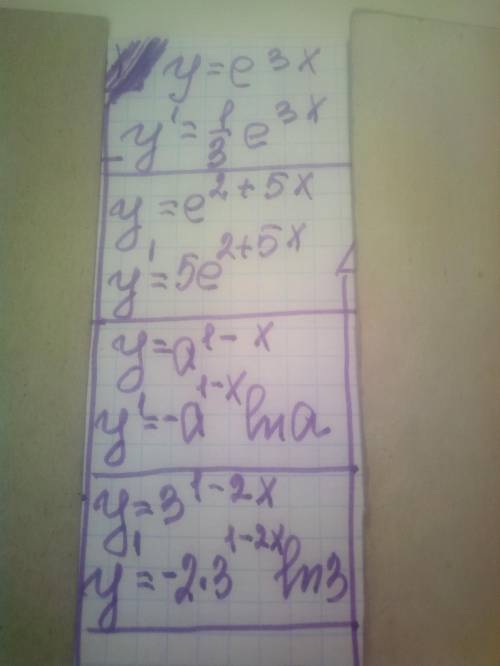 y = e^{3x}
y' = \frac{1}{3} e^{3x}
y = e^{2+5x}
y' = 5e^{2+5x}
y = a^{1-x}
y' = -a^{1-x} ln a
y = 3^{1-2x}
y' = -2·3^{1-2x} ln 3